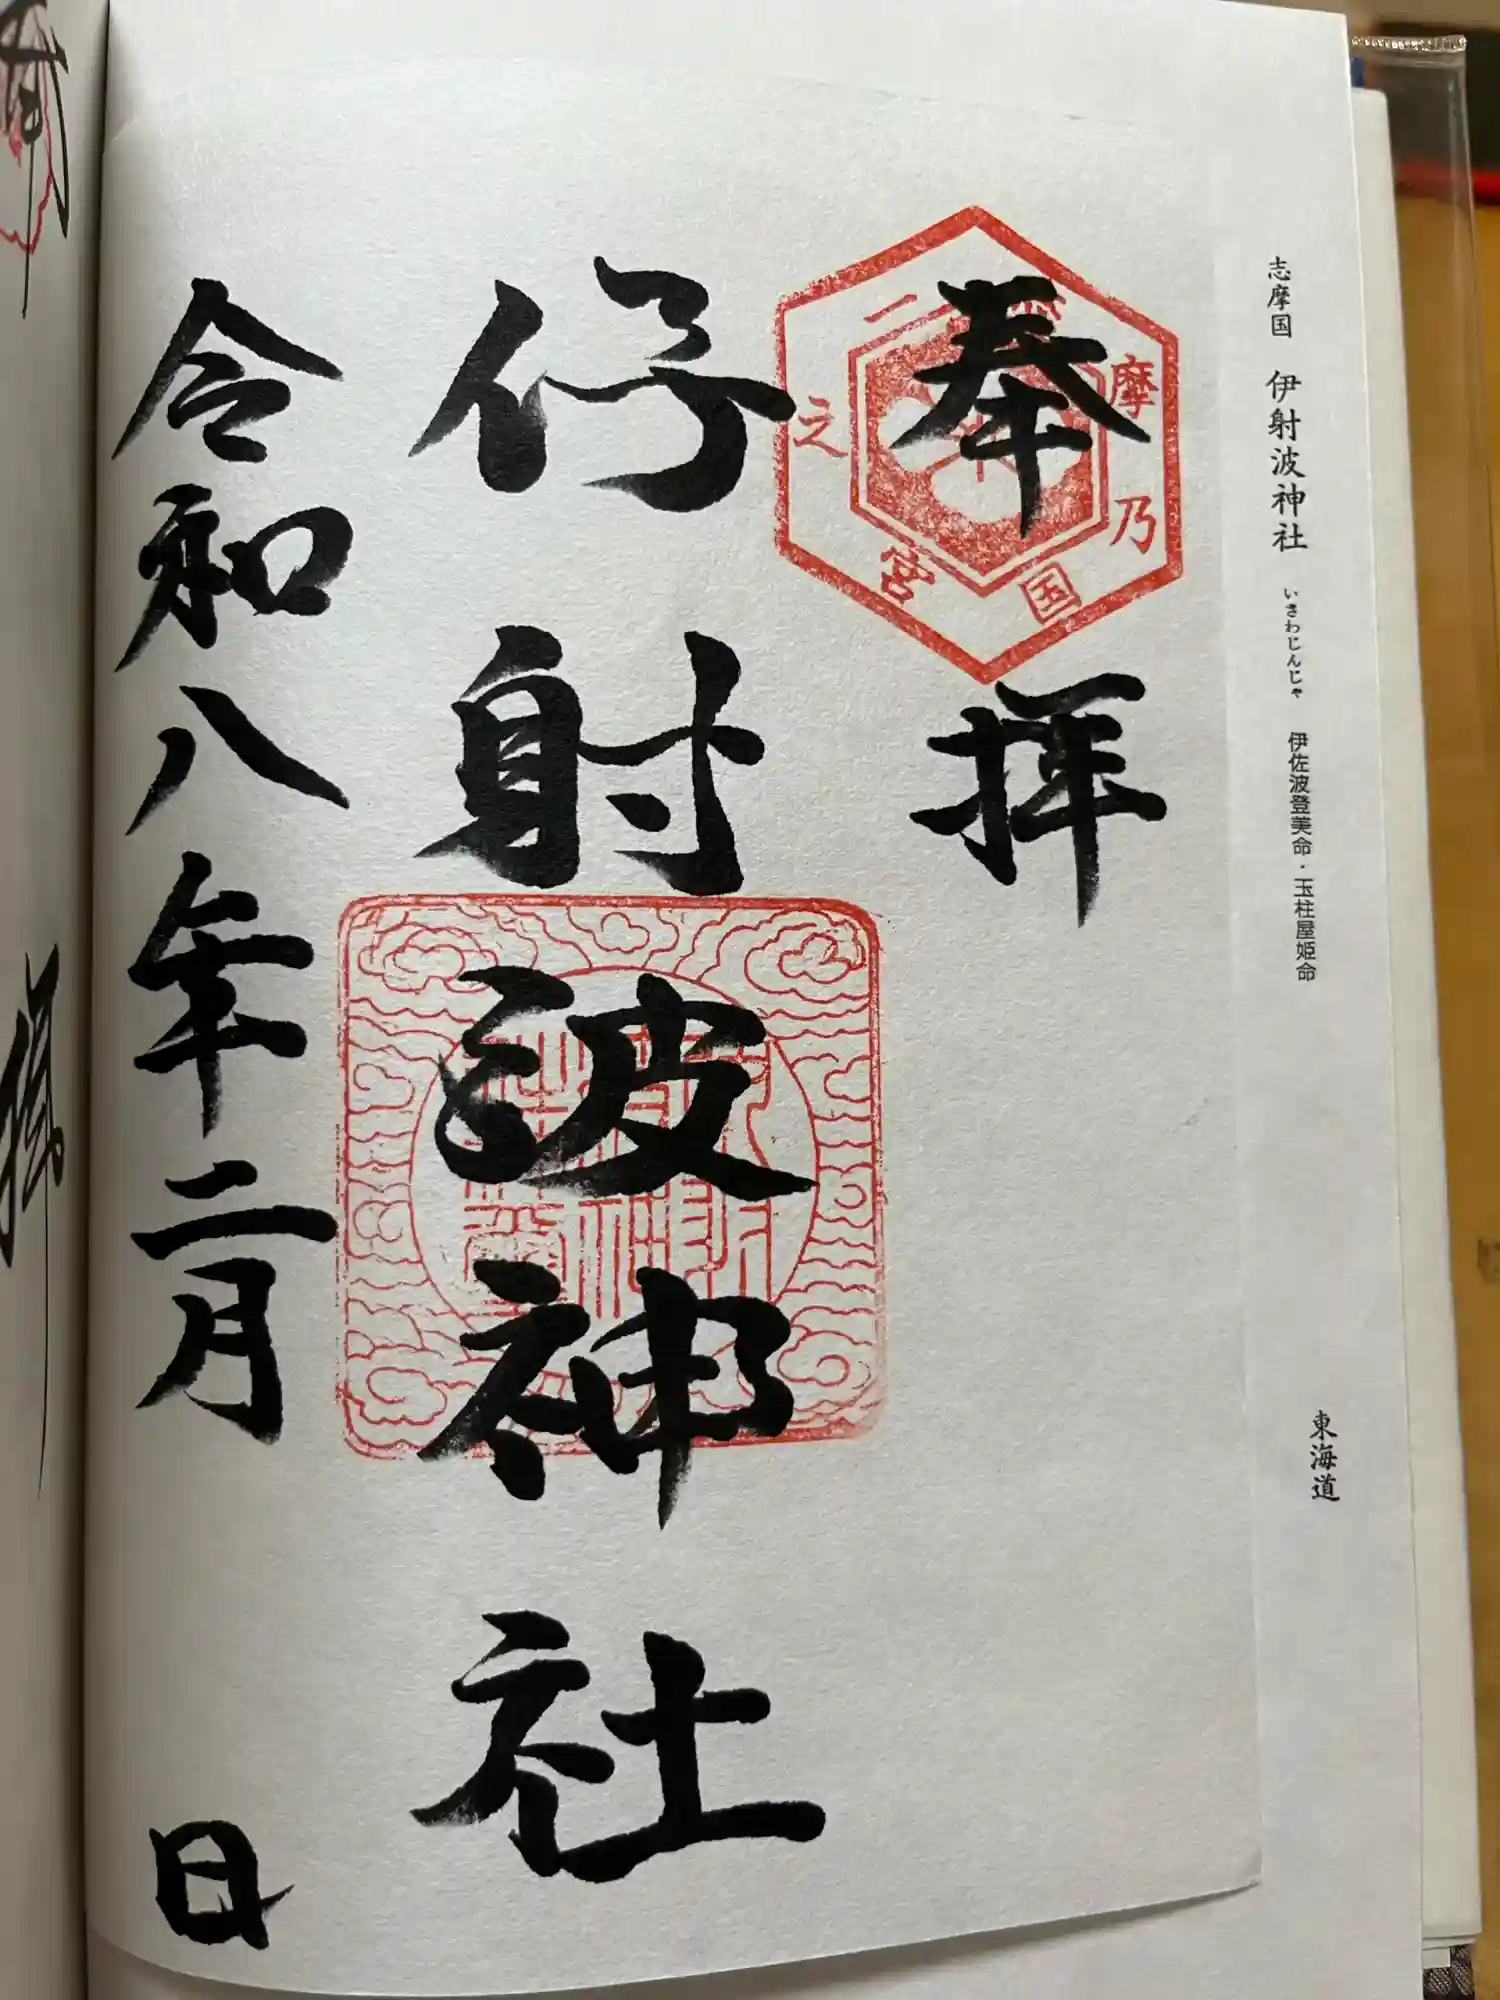 志摩国 伊射波神社 いさわじんじゃ 伊佐波登美命・玉柱屋姫命
東海道
奉拝
摩乃国一之宮
伊射波神社
令和八年二月 日